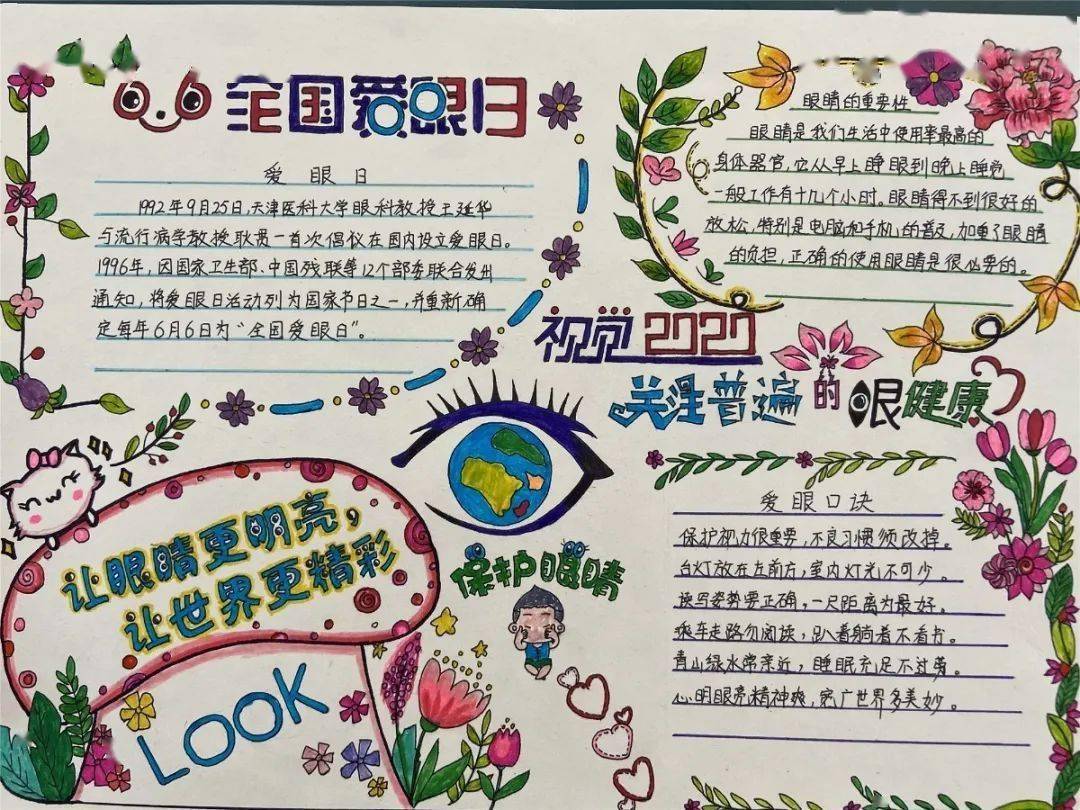 全国爱眼日
爱眼日
1992年9月25日,天津医科大学眼科教授王延华
与流行病学教授耿贯一首次倡仪在国内设立爱眼日。
1996年,因国家卫生部、中国残联等12个部委联合发出
通知,将爱眼日活动列为国家节日之一,并重新确
定每年6月6日为“全国爱眼日”。
眼睛的重要性
眼睛是我们生活中使用率最高的
身体器官,它从早上睁眼到晚上睡觉
一般工作有十几个小时。眼睛得不到很好的
放松,特别是电脑和手机的普及,加重了眼睛
的负担,正确的使用眼睛是很必要的。
视觉2020
关注普遍的眼健康
让眼睛更明亮,
让世界更精彩
LOOK
保护眼睛
爱眼口诀
保护视力很重要,不良习惯须改掉。
台灯放在左前方,室内灯光不可少。
读写姿势要正确,一尺距离为最好。
乘车走路勿阅读,趴着躺着不看书。
青山绿水常亲近,睡眠充足不过劳。
心明眼亮精神爽,宽广世界多美妙。